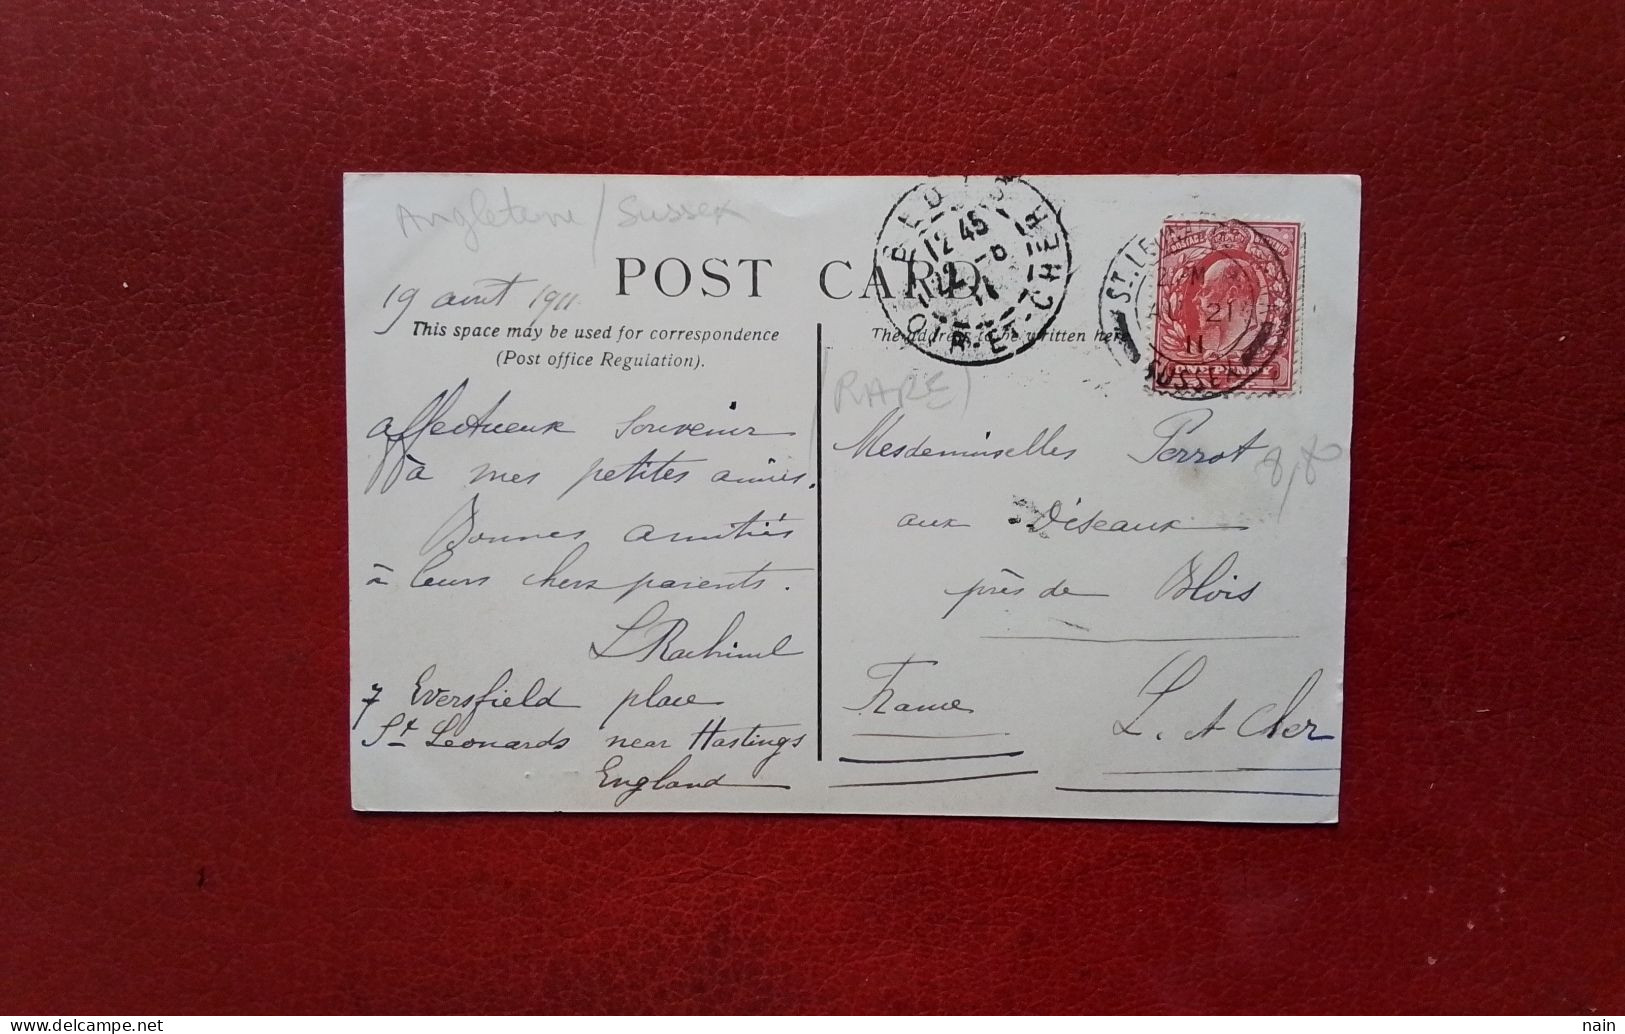 Angleterre / Sussex
19 août 1911
POST CARD
This space may be used for correspondence
(Post office Regulation).
The address to be written here
affectueux souvenir
à mes petites amies.
Bonnes amitiés
à leurs chers parents.
7 Eversfield place
St Leonards near Hastings
England
(RARE)
Mesdemoiselles Perrot
8,80
aux
près de Blois
France
L. et Cher
12 45
LOIR-ET-CHER
ST. LEONARDS
AU 21
11
SUSSEX
ONE PENNY
nain
delcampe.net